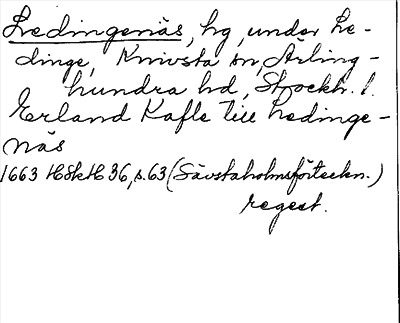 Ledingenäs, hg, under Le-
dinge, Knivsta sn, Ärling-
hundra hd, Stockh. l.
Erland Kafle till Ledinge-
näs
1663 HSkH 36, s. 63 (Sävstaholmsförteckn.)
regest.